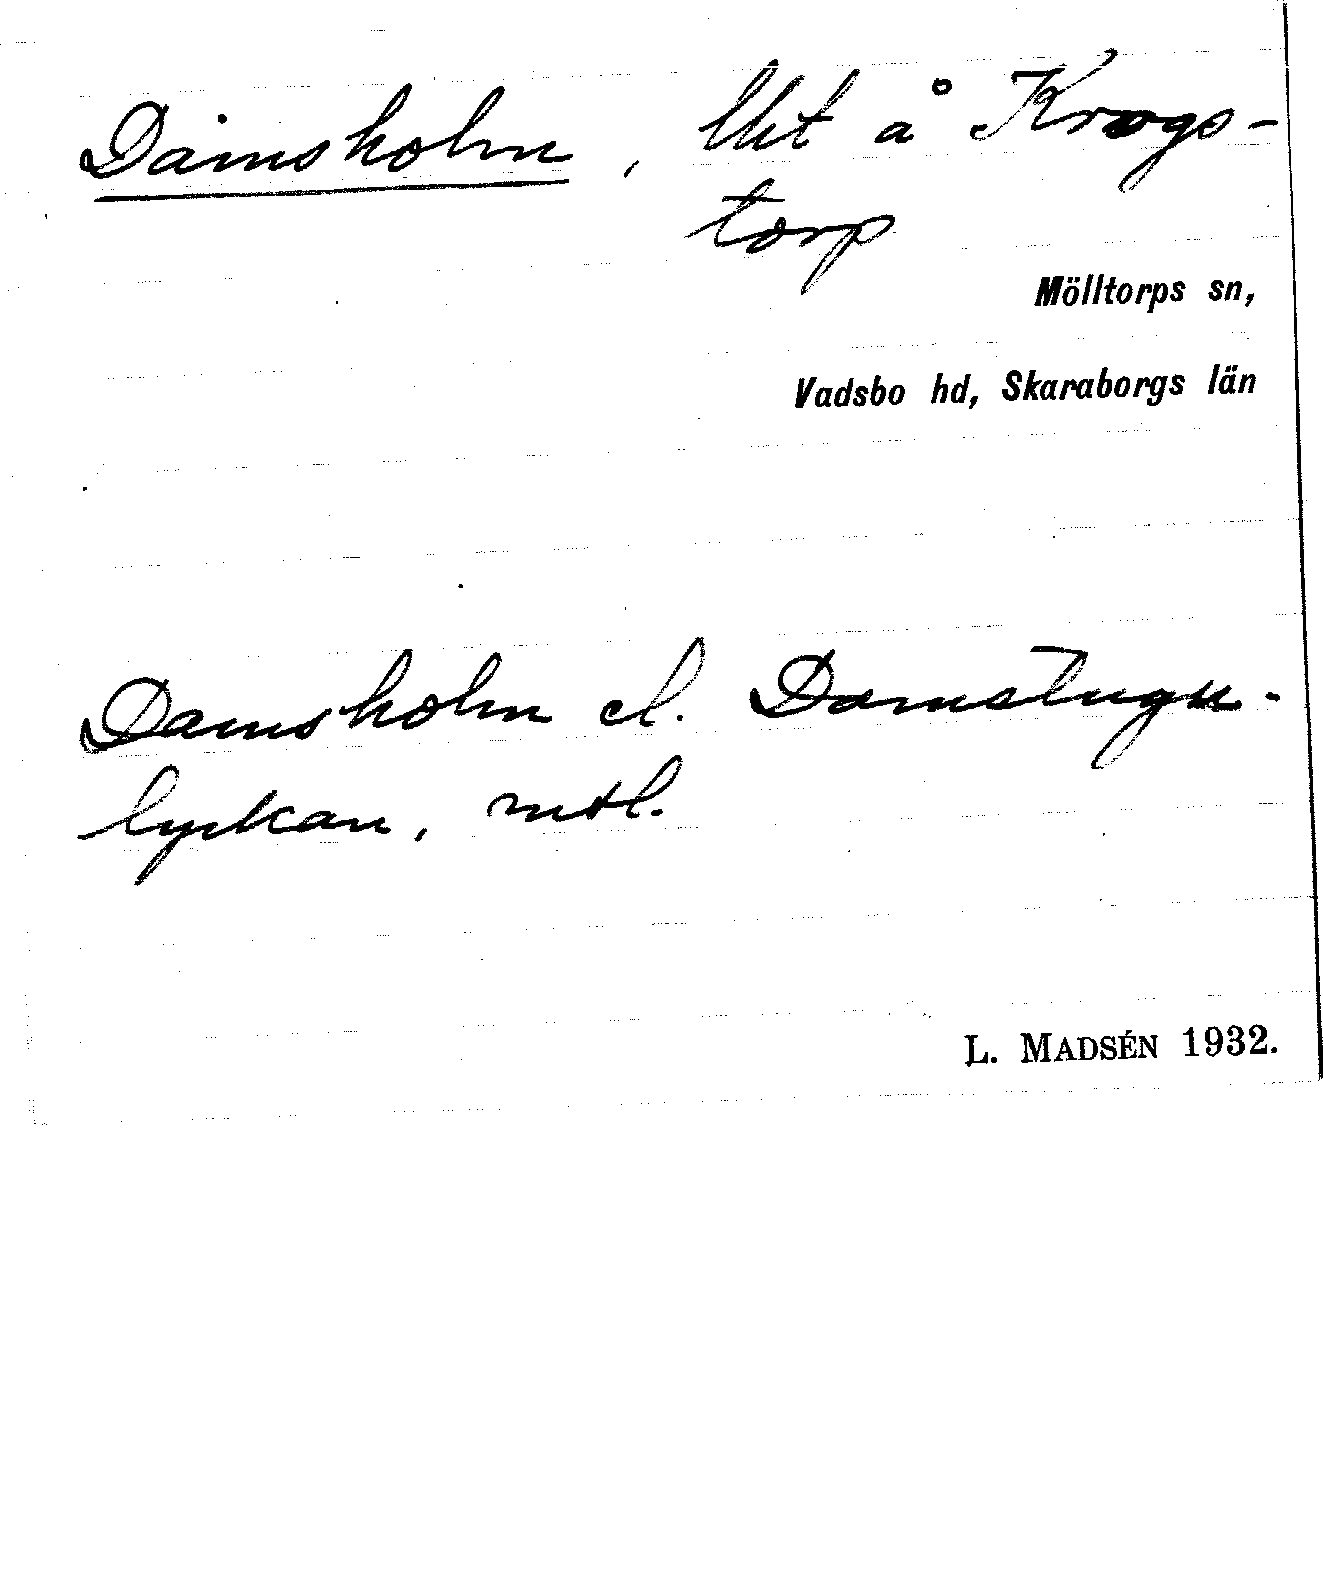 Damsholm, lht å Krogs-
torp
Mölltorps sn,
Vadsbo hd, Skaraborgs län
Damsholm el. Damstugu-
lyckan, mtl.
L. MADSÉN 1932.